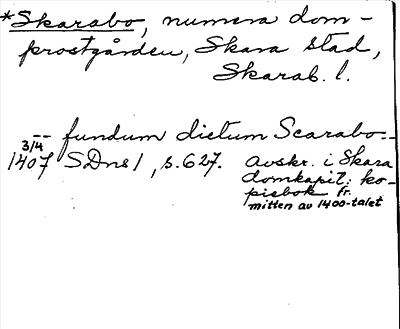 *Skarabo, numera dom-
prostgården, Skara stad,
Skarab. l.
-- fundum dictum Scarabo --
3/4
1407 SDns 1, s. 627. avskr. i Skara
domkapit:s ko-
piebok fr.
mitten av 1400-talet